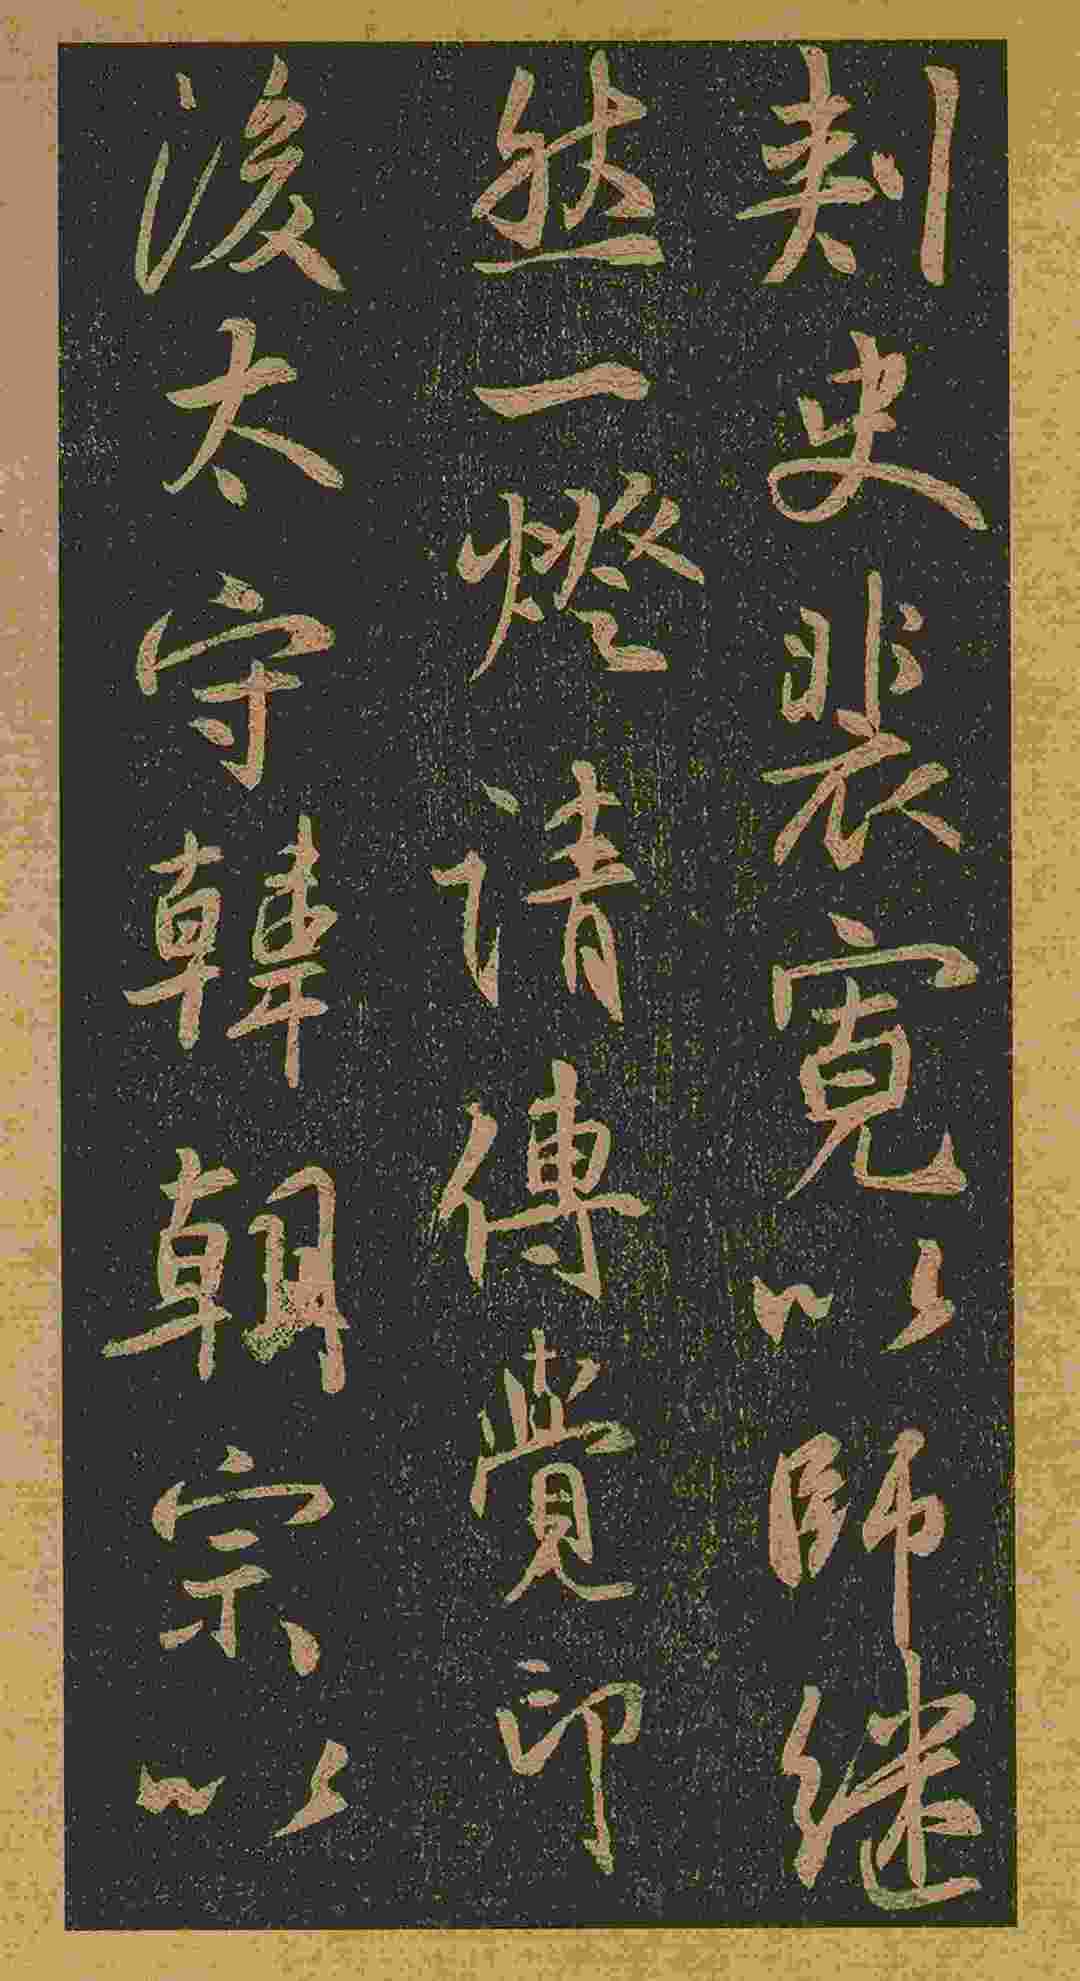 刺史裴寬以師継
然一燈請傳覺印
後太守韓朝宗以